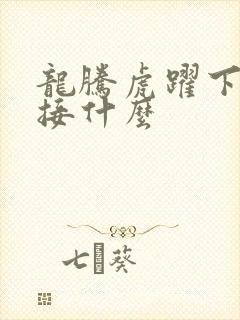 龍騰虎躍下
接什麼
七葵